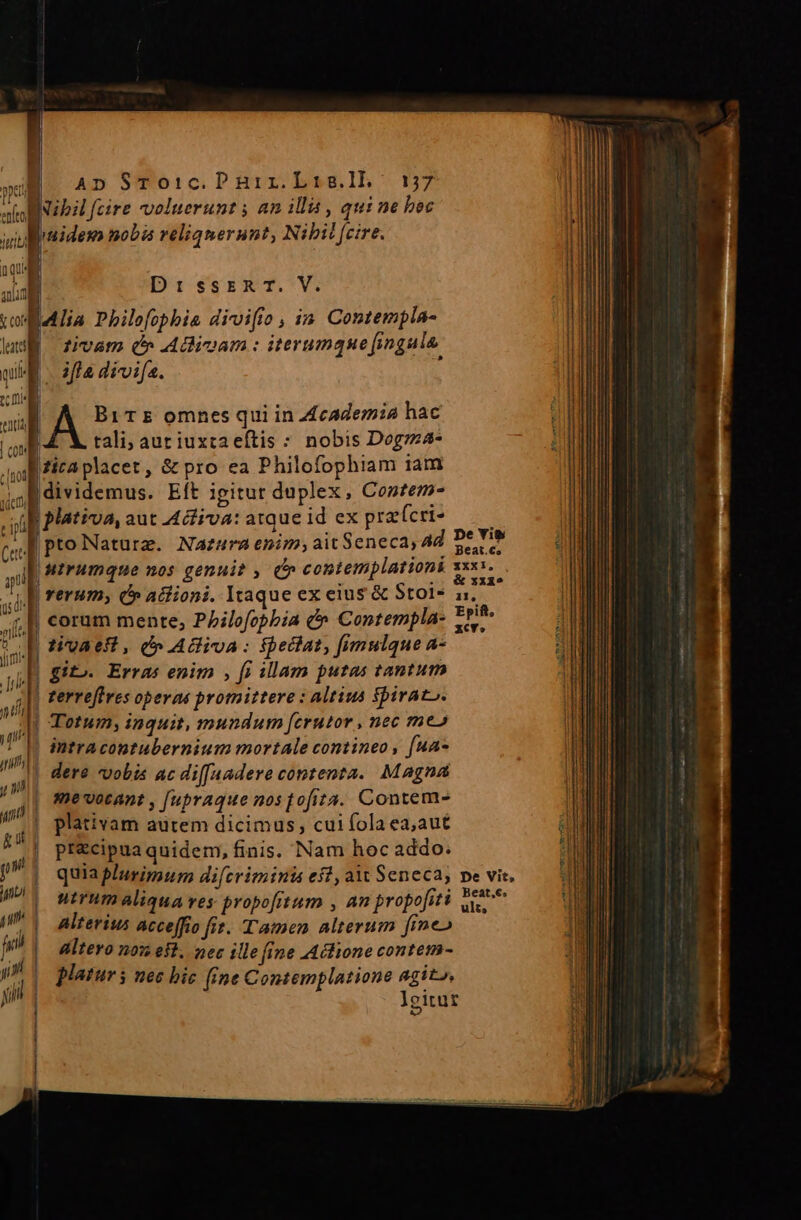 AD STOIC. PHIL. LIB. II. 137
Nihil ſcire voluerunt; an illis, qui ne hoc
quidem nobis reliquerunt, Nihil ſcire.
DISSERT. V.
Alia Philoſophiæ diviſio, in Contempla-
tivam & Activam: iterumque ſingulæ
iſtæ diviſæ.
ABITE omnes qui in Academia hac
tali, aut iuxta eſtis: nobis Dogma-
tica placet, & pro ea Philoſophiam iam
dividemus. Eſt igitur duplex, Contem-
plativa, aut Activa: atque id ex præſcri-
pto Naturæ. Natura enim, ait Seneca, ad
utrumque nos genuit, & contemplationi
rerum, & actioni. Itaque ex eius & Stoi-
corum mente, Philoſophia & Contempla-
tiva eſt, & Activa: ſpectat, ſimulque a-
git. Erras enim, ſi illam putas tantum
terreſtres operas promittere: altius ſpirat.
Totum, inquit, mundum ſcrutor, nec me
intra contubernium mortale contineo, ſua-
dere vobis ac diſſuadere contenta. Magna
me vocant, ſupraque nos poſita. Contem-
plativam autem dicimus, cui ſola ea, aut
præcipua quidem, finis. Nam hoc addo:
quia plurimum diſcriminis eſt, ait Seneca,
utrum aliqua res propoſitum, an propoſiti
alterius acceſſio ſit. Tamen alterum ſine
altero non eſt. nec ille ſine Actione contem-
platur; nec hic ſine Contemplatione agit.
Igitur
De Vit.
Beat. c.
xxxi.
& xxx.
Epiſt.
xcv.
De Vit.
Beat. c.
ult.